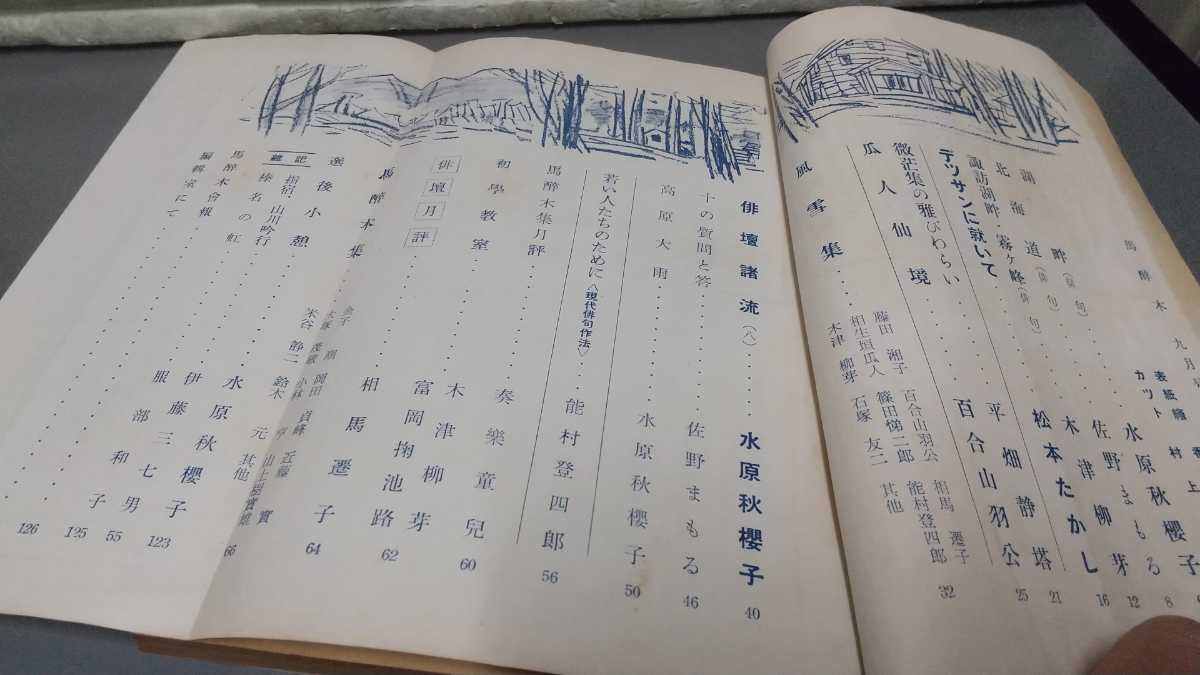 馬醉木 九月
表紙繪 村上
カット
湖畔（俳句） 水原秋櫻子 8
北海道（俳句） 佐野まもる 12
諏訪湖畔・霧ヶ峰（俳句） 木津柳芽 16
デッサンに就いて 松本たかし 21
微茫集の雅びわらい 平畑静塔 25
瓜人仙境 百合山羽公
風雪集 藤田湘子 百合山羽公 相馬遷子 32
相生垣瓜人 篠田悌二郎 能村登四郎
木津柳芽 石塚友二 其他
俳壇諸流（八） 水原秋櫻子 40
十の質問と答 佐野まもる 46
高原大雨 水原秋櫻子 50
若い人たちのために〈現代俳句作法〉 能村登四郎 56
馬醉木集月評 奏樂童兒 60
初學教室 木津柳芽
俳壇月評 富岡掬池路 62
馬醉木集 相馬遷子 64
選後小憩 水原秋櫻子 123
雜記 指宿、山川吟行 伊藤三七男 55
榛名の虹 服部和子 125
馬醉木會報
編輯室にて 126
米谷静二 鈴木元 其他 66